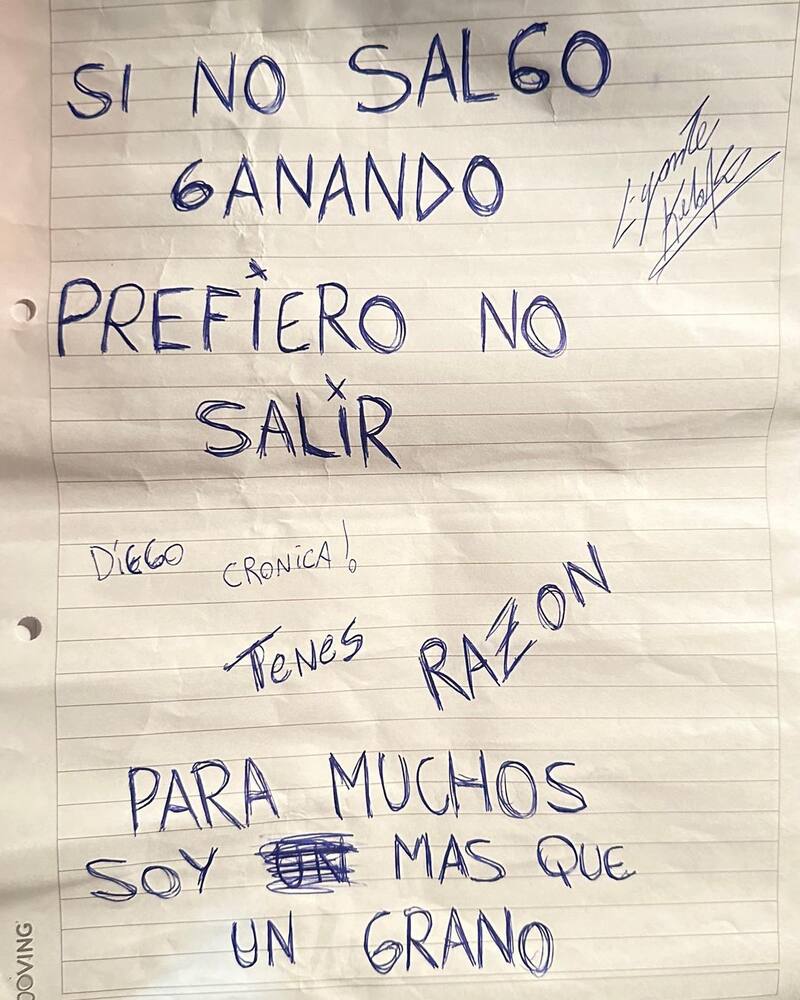 SI NO SALGO
GANANDO
PREFIERO NO
SALIR
DIEGO CRONICA!
TENES RAZON
PARA MUCHOS
SOY UN MAS QUE
UN GRANO
OOVING